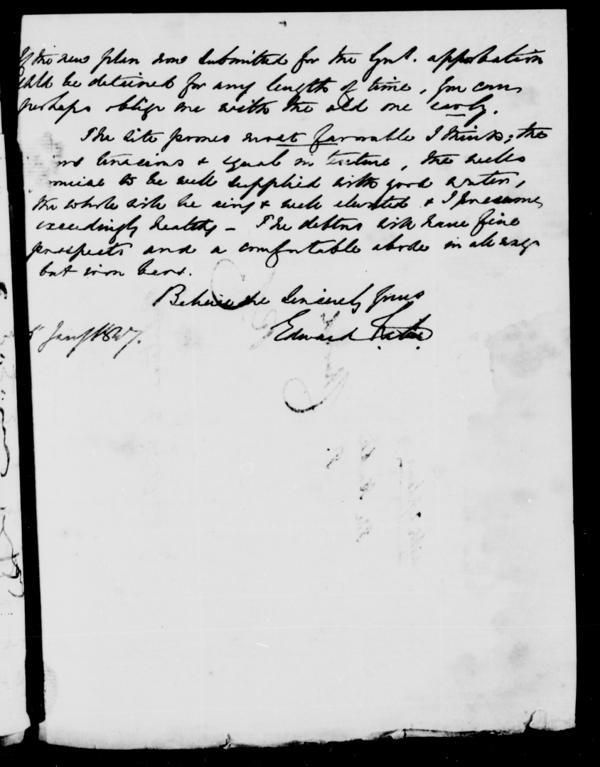 If the new plan now submitted for the Gov.t approbation
be detained for any length of time, you can
perhaps oblige me with the old one early.
The site proves most favorable I think; the
tenacious & equal in texture, the wells
to be well supplied with good water,
the whole will be airy & well elevated & I presume,
exceedingly healthy – The debtors will have fine
prospects and a comfortable abode in all ways
but iron bars.
Believe me Sincerely Yours
Edward